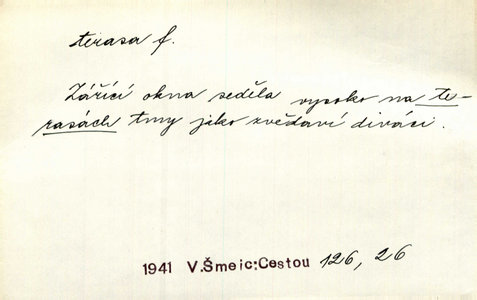 terasa f.
Zářící okna seděla vysoko na te-
rasách tmy jako zvědaví diváci.
1941 V.Šmejc:Cestou 126, 26